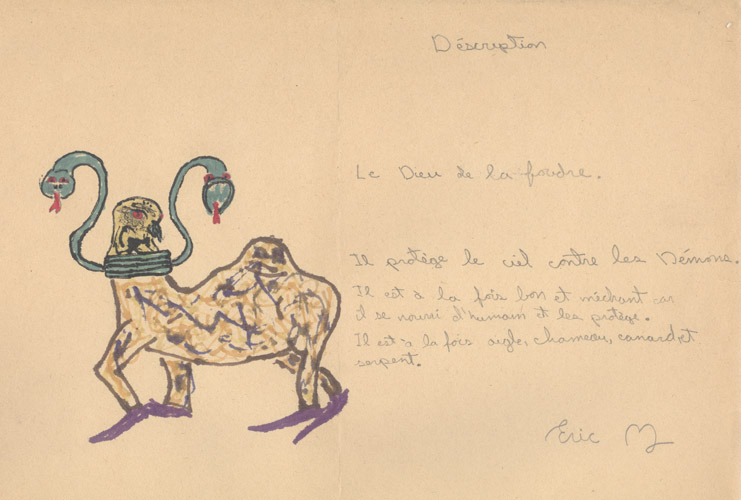 Déscription
Le Dieu de la foudre.
Il protège le ciel contre les Démons.
Il est à la fois bon et méchant car
il se nourri d'humain et les protège.
Il est à la fois aigle, chameau, canard et
serpent.
Eric M